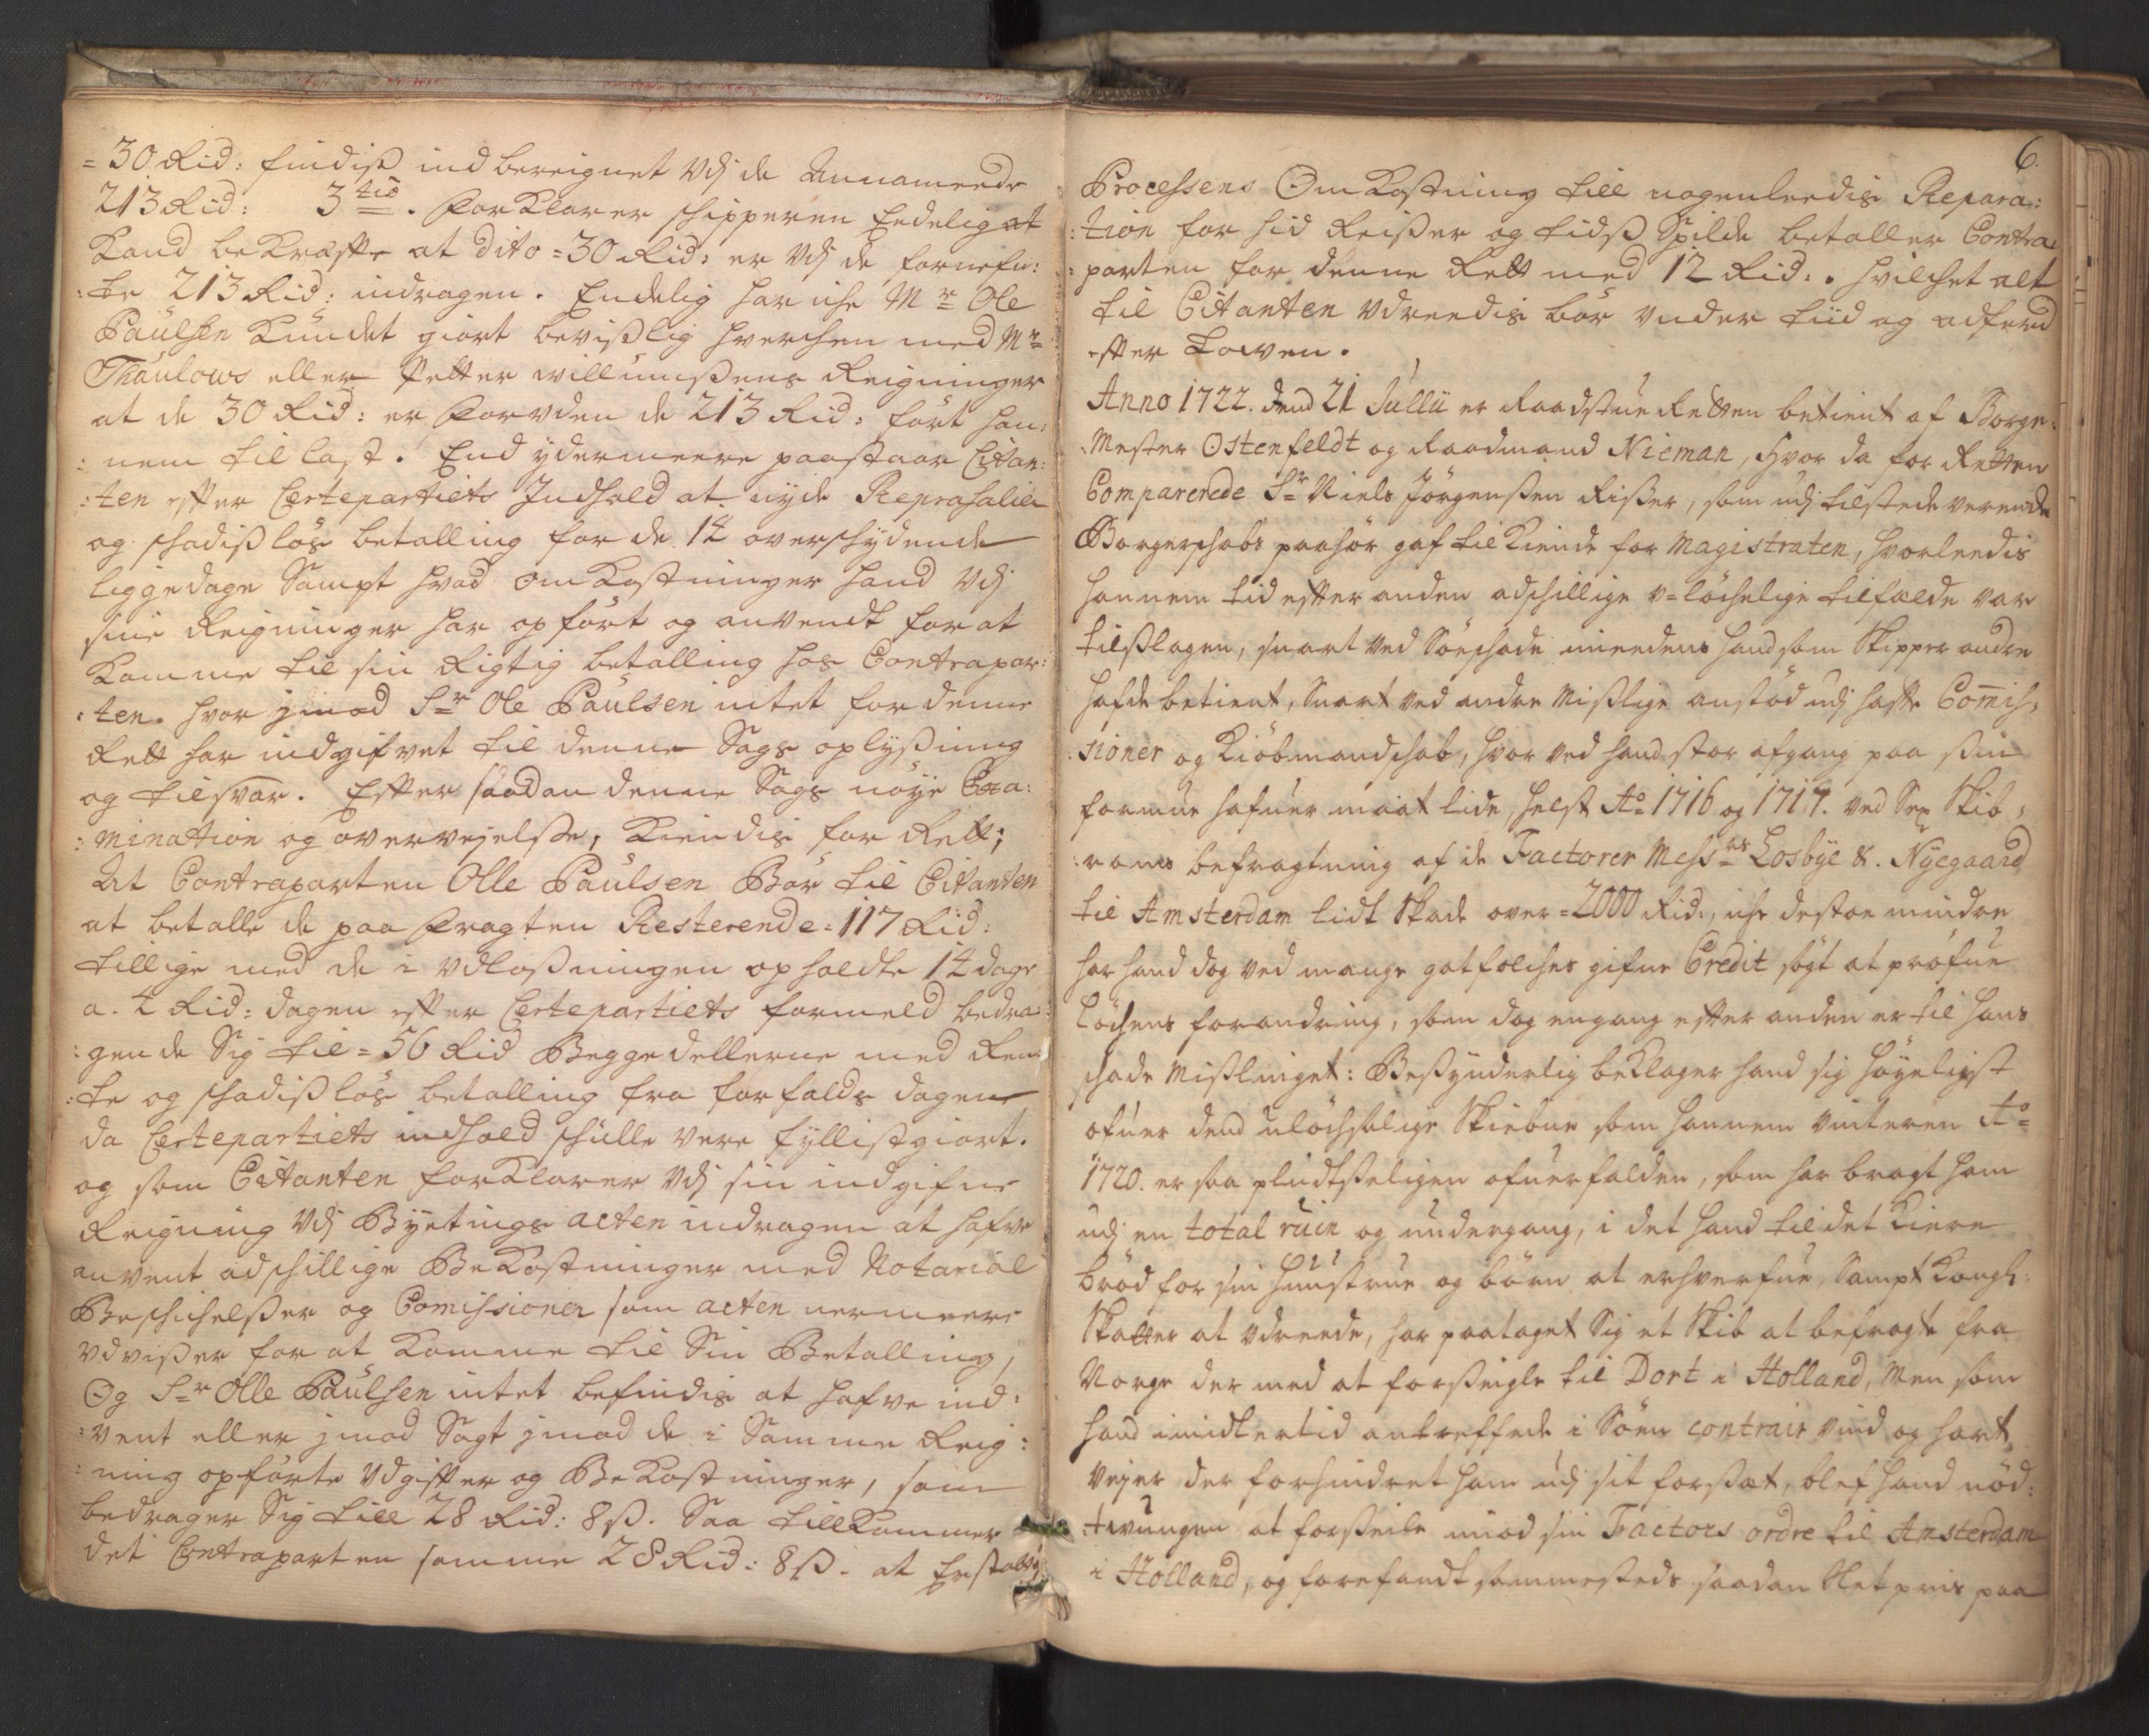 =30 Rid: findiß indbereignet Udj de Annameede
213 Rid: 3tio. Forklarer schipperen Eedelig at
kand bekræfte at dito =30 Rid: er Udj de fornefn:
:te 213 Rid: indragen. Endelig har iche Mr Ole
Paulsen kundet giort bevißlig hverchen med Mr
Thaulows eller Petter willumßens Reigninger
at de 30 Rid: er foruden de 213 Rid: ført han:
:nem til last. End ydermeere paastaar Citan:
:ten efter Certepartiets Indhold at nyde Repræsalier
og schadißløs betalling for de 14 overschydende
liggedage Sampt hvad omkostninger hand Udj
sine Reigninger har opført og anvendt for at
komme til sin Rigtig betalling hos Contrapar:
:ten. hvor jmod Sr Ole Paulsen intet for denne
Rett har indgifvet til denne Sags oplyßning
og tilsvar. Efter saadan denne Sags nøye Exa:
:mination og overvejelse, kiendis for Rett;
At Contraparten Olle Paulsen Bør til Citanten
at betalle de paa Fragten Resterende =117 Rid:
tillige med de i Udloßningen opholdte 14 dage
a. 4 Rid: dagen efter Certepartiets formeld bedra:
:gende Sig til =56 Rid Beggedellerne med Ren:
:te og schadißløs betalling fra forfalds dagen
da Certepartiets indhold schulle vere fyllistgiort.
og som Citanten forklarer Udj sin indgifne
Reigning Udj Byetings acten indragen at hafve
anvent adschillige Bekostninger med Notarial
Beschichelßer og Comissioner som acten nermeere
Udvißer for at komme til Sin Betalling,
Og Sr Olle Paulsen intet befindis at hafve ind:
:vent eller jmod Sagt jmod de i Samme Reig:
:ning opførte Udgifter og Bekostninger, som
bedrager Sig till 28 Rid: 8 ß. Saa tillkommer
det Contraparten samme 28 Rid: 8 ß. at Erstatte
6.
Processens Omkostning till nogenleedis Repara:
:tion for hid Reißer og tidß Spilde betaller Contra:
:parten for denne Rett med 12 Rid:. hvilchet alt
til Citanten Udreedis bør under Liid og adferd
efter Lowen.
Anno 1722. dend 21 Jullii er Raadstue Retten betient af Borge:
:Mester Ostenfeldt og Raadmand Nieman, hvor da for Retten
Comparerede Sr Niels Jörgenßen Rißer, som udj tilstede verende
Borgerschabs paahør gaf tilkiende for Magistraten, hvorleedis
hannem tid efter anden adschillige u=løchelige tilfælde var
tilslagen, snart ved Søeschade imeedens hand som Skipper andre
hafde betient, Snart ved andre Mißlige anstød udj hafte Comis:
:sioner og Kiøbmandschab, hvor ved hand stor afgang paa sin
formue hafuer maat lide, helst Ao 1716 og 1717. ved Sex Skib:
:roms befragtning af de Factorer Messrs Losbye &. Nyegaard
til Amsterdam lidt Skade over =2000 Rid:, iche destoe mindre
har hand dog ved mange gotfolches gifne Credit søgt at prøfue
Løchens forandring, som dog engang efter anden er til hans
schade Mißlinget: Beßynderlig beklager hand sig høyeligst
ofuer dend uløchsalige Skiebne som hannem vinteren Ao
1720. er saa pludtseligen ofuerfalden, som har bragt ham
udj en total ruin og undergang, i det hand til det kiere
brød for sin huustrue og børn at erhverfue, Sampt Kongl:
Skatter at Udreede, har paataget Sig et Skib at befragte fra
Norge der med at forseigle til Dort i Holland, Men som
hand imidlertid antreffede i Søen contrair vind og hart
Vejer der forhindret ham udj sit forßæt, blef hand nød:
:tvungen at forßeile imod sin Factors ordre til Amsterdam
i Holland, og forefandt sammesteds saadan slet pris paa